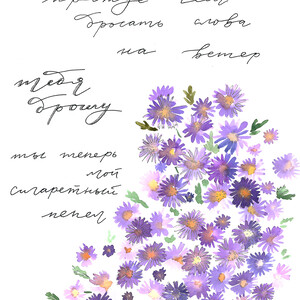 бросать слова
на ветер
тебя
брошу
ты теперь
мой
сигаретный
пепел